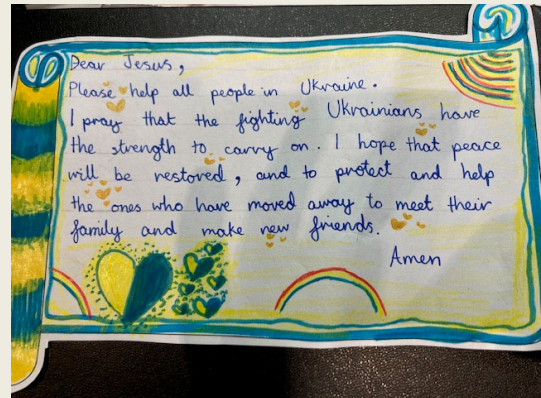 Dear Jesus,
Please help all people in Ukraine.
I pray that the fighting Ukrainians have
the strength to carry on. I hope that peace
will be restored, and to protect and help
the ones who have moved away to meet their
family and make new friends.
Amen